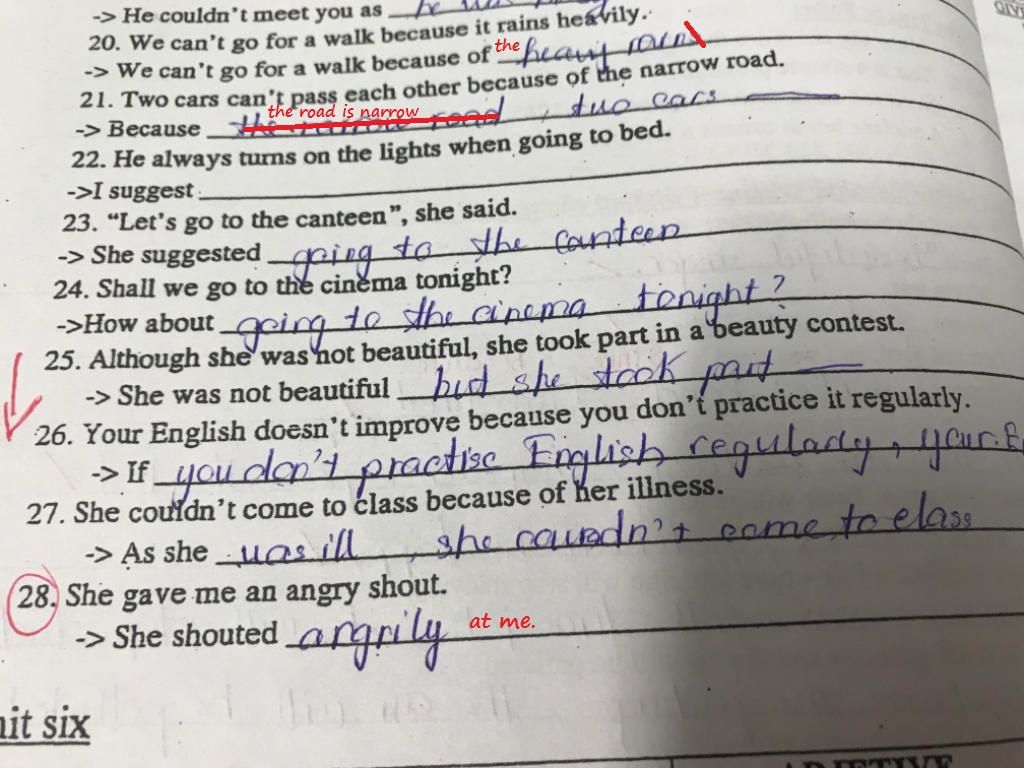 -> He couldn't meet you as he was
20. We can't go for a walk because it rains heavily.
-> We can't go for a walk because of the heavy rain
21. Two cars can't pass each other because of the narrow road.
the road is narrow
-> Because the narrow road, two cars
22. He always turns on the lights when going to bed.
->I suggest
23. “Let's go to the canteen”, she said.
-> She suggested going to the canteen
24. Shall we go to the cinema tonight?
->How about going to the cinema tonight?
25. Although she was not beautiful, she took part in a beauty contest.
-> She was not beautiful but she took part
26. Your English doesn't improve because you don't practice it regularly.
-> If you don't practise English regularly, your E
27. She couldn't come to class because of her illness.
-> As she was ill, she couldn't come to class
28. She gave me an angry shout.
-> She shouted angrily at me.
nit six